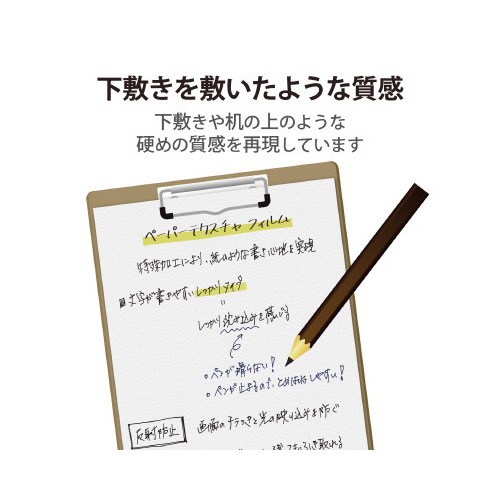 下敷きを敷いたような質感
下敷きや机の上のような
硬めの質感を再現しています
ペーパーテクスチャフィルム
特殊加工により、紙のような書き心地を実現
文字が書きやすいしっかりタイプ
しっかり
を感じる
ペンが滑らない!
ペンが止まるので、とめはねはらいしやすい!
反射防止
画面のチラつきと光の映り込みを防ぐ